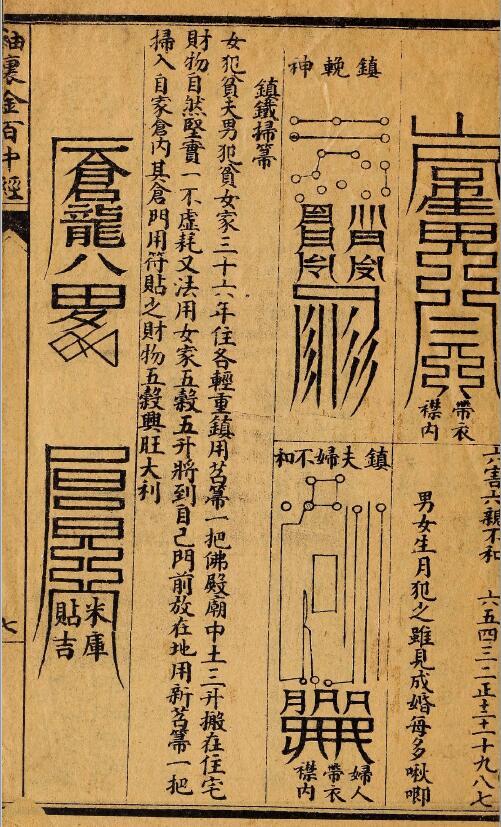 帶衣
襟內
六害六親不和 六五四三二正十二十一十九八七
男女生月犯之雖見成婚每多啾唧
鎮輓神
鎮夫婦不和
婦人
帶衣
襟內
鎮鐵掃箒
女犯貧夫男犯貧女家三十六年住各輕重鎮用苕箒一把佛殿廟中土三升搬在住宅
財物自然堅實一不虛耗又法用女家五穀五升將到自己門前放在地用新苕箒一把
掃入自家倉內其倉門用符貼之財物五穀興旺大利
倉龍八
米庫
貼吉
袖裏金百中經
七